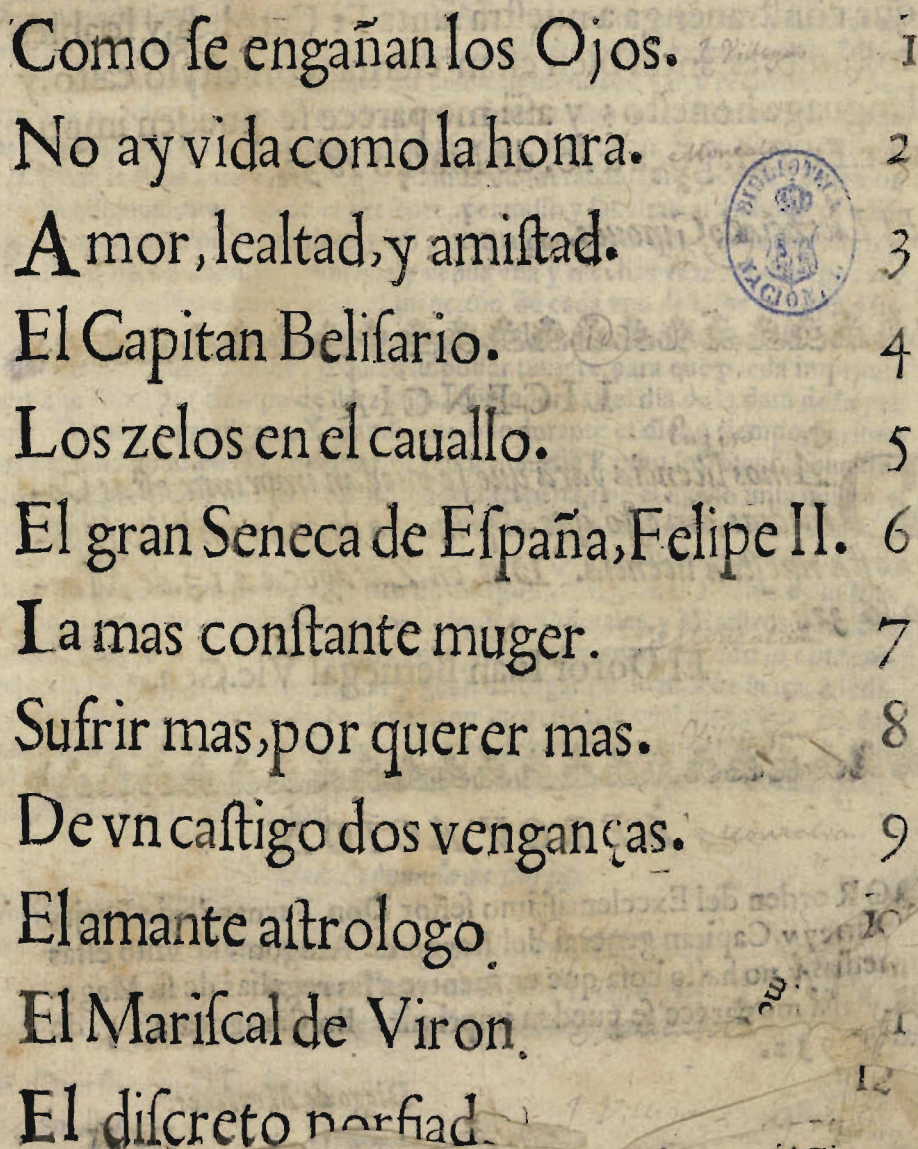 Como ſe engañan los Ojos. 1
No ay vida como la honra. 2
Amor, lealtad, y amiſtad. 3
El Capitan Beliſario. 4
Los zelos en el cauallo. 5
El gran Seneca de Eſpaña, Felipe II. 6
La mas conſtante muger. 7
Sufrir mas, por querer mas. 8
De vn caſtigo dos venganças. 9
El amante aſtrologo. 10
El Mariſcal de Viron. 11
El diſcreto porfiad. 12
BIBLIOTECA NACIONAL